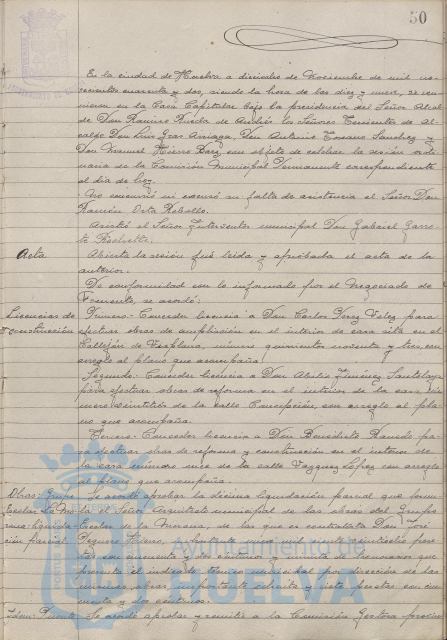 50
En la ciudad de Huelva a dieciocho de Noviembre de mil no-
vecientos cuarenta y dos, siendo la hora de las diez y nueve, se reu-
nieron en la Casa Capitular bajo la presidencia del Señor Alcal-
de Don Ramiro Rueda de Andrés los Señores Tenientes de Al-
calde Don Luis Grar Arriaga, Don Antonio Toscano Sanchez y
Don Manuel Hierro Baez con objeto de celebrar la sesión ordi-
naria de la Comisión Municipal Permanente correspondiente
al dia de hoy.
No concurrió ni excusó su falta de asistencia el Señor Don
Ramón Orta Rebollo.
Asistió el Señor Interventor municipal Don Gabriel Garro-
te
Acta
Abierta la sesión fué leida y aprobada el acta de la
anterior.
De conformidad con lo informado por el Negociado de
Fomento, se acordó:
Licencias de construcción
Primero: Conceder licencia a Don Carlos Perez Velez para
efectuar obras de ampliación en el interior de casa sita en el
Callejón de número quinientos noventa y tres, con
arreglo al plano que acompaña.
Segundo: Conceder licencia a Don Jiménez Santolaya
para efectuar obras de reforma en el interior de la casa nú-
mero veintitrés de la calle Concepción, con arreglo al pla-
no que acompaña.
Tercero: Conceder licencia a Don Benedicto pa-
ra efectuar obras de reforma y construcción en el interior de
la casa número once de la calle Vazquez López con arreglo
al plano que acompaña.
Obras: Grupo
Se acordó aprobar la décima liquidación parcial que formu-
Escolar La Mo
la el Señor Arquitecto municipal de las obras del Grupo
liquida-
Escolar de la Morana, de las que es contratista Don José
ción parcial
importante once mil ciento veinticinco pese-
tas con cincuenta y dos centimos y la cuenta de honorarios que
presenta el indicado técnico municipal por dirección de las
mismas obras importante ochenta y siete pesetas con cin-
cuenta y dos centimos.
Idem: Puente
Se acordó aprobar y remitir a la Comisión Gestora provin-
Ayuntamiento de
HUELVA